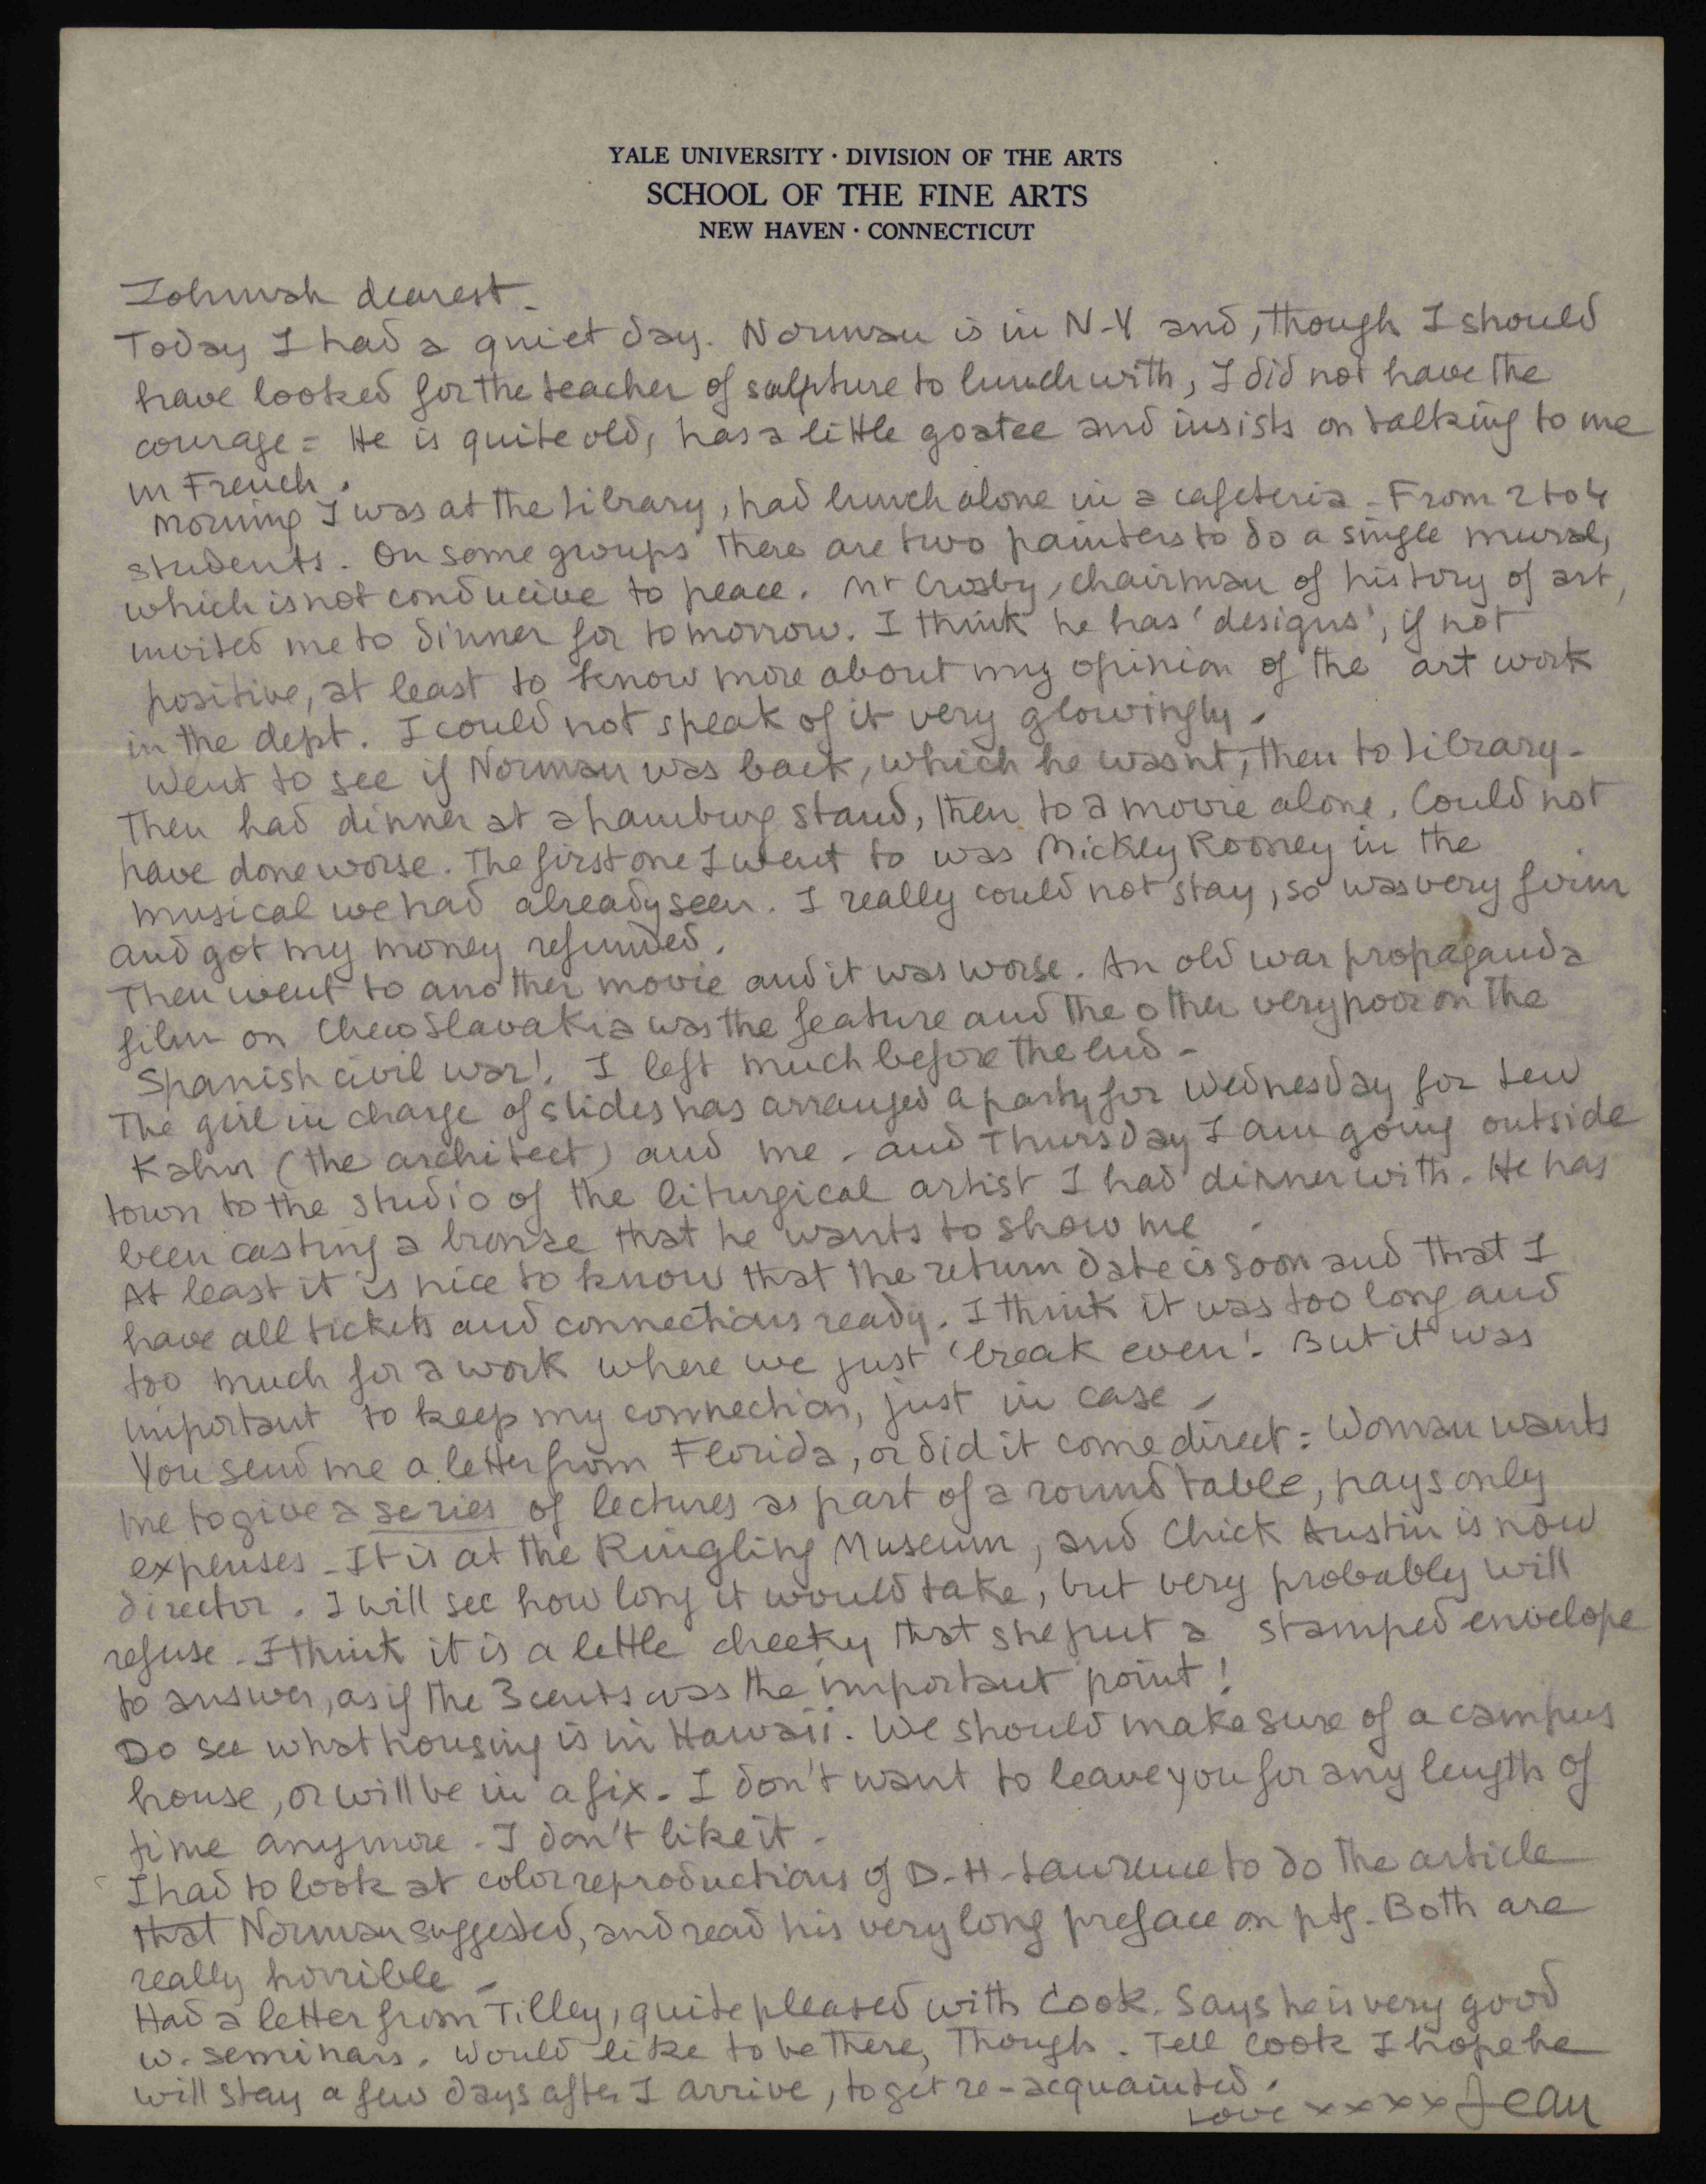 YALE UNIVERSITY · DIVISION OF THE ARTS
SCHOOL OF THE FINE ARTS
NEW HAVEN · CONNECTICUT
Zohmah dearest -
Today I had a quiet day. Norman is in N-Y and, though I should
have looked for the teacher of sculpture to lunch with, I did not have the
courage = He is quite old, has a little goatee and insists on talking to me
in French.
Morning I was at the library, had lunch alone in a cafeteria - From 2 to 4
students. On some groups there are two painters to do a single mural,
which is not conducive to peace. Mr Crosby, chairman of history of art,
invited me to dinner for tomorrow. I think he has 'designs', if not
positive, at least to know more about my opinion of the art work
in the dept. I could not speak of it very glowingly.
Went to see if Norman was back, which he wasn't, then to library -
Then had dinner at a hamburg stand, then to a movie alone. Could not
have done worse. The first one I went to was Mickey Rooney in the
musical we had already seen. I really could not stay, so was very firm
and got my money refunded.
Then went to another movie and it was worse. An old war propaganda
film on Checo Slavakia was the feature and the other very poor on the
Spanish civil war! I left much before the end -
The girl in charge of slides has arranged a party for Wednesday for Lew
Kahn (the architect) and me - and Thursday I am going outside
town to the studio of the liturgical artist I had dinner with. He has
been casting a bronze that he wants to show me.
At least it is nice to know that the return date is soon and that I
have all tickets and connections ready. I think it was too long and
too much for a work where we just 'break even'. But it was
important to keep my connection, just in case -
You send me a letter from Florida, or did it come direct = Woman wants
me to give a series of lectures as part of a round table, pays only
expenses - It is at the Ringling Museum, and Chick Austin is now
director. I will see how long it would take, but very probably will
refuse - I think it is a little cheeky that she put a stamped envelope
to answer, as if the 3 cents was the important point!
Do see what housing is in Hawaii. We should make sure of a campus
house, or will be in a fix. I don't want to leave you for any length of
time anymore - I don't like it -
I had to look at color reproductions of D-H-Lawrence to do the article
that Norman suggested, and read his very long preface on ptg - Both are
really horrible -
Had a letter from Tilley, quite pleased with Cook. Says he is very good
w. seminars. Would like to be there, though. Tell Cook I hope he
will stay a few days after I arrive, to get re-acquainted.
Love x x x x Jean